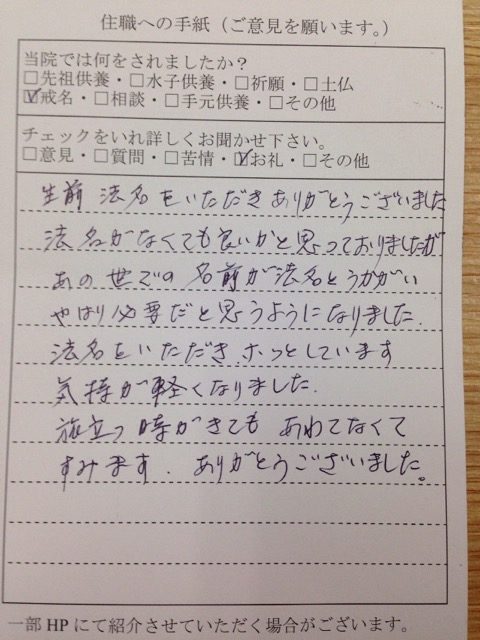 住職への手紙（ご意見を願います。）
当院では何をされましたか？
□先祖供養・□水子供養・□祈願・□土仏
☑戒名・□相談・□手元供養・□その他
チェックをいれ詳しくお聞かせ下さい。
□意見・□質問・□苦情・☑お礼・□その他
生前 法名をいただきありがとうございました
法名がなくても良いかと思っておりましたが
あの世での名前が法名とうかがい
やはり必要だと思うようになりました.
法名をいただき ホッとしています
気持が軽くなりました.
旅立つ時がきても あわてなくて
すみます. ありがとうございました。
一部 HP にて紹介させていただく場合がございます。